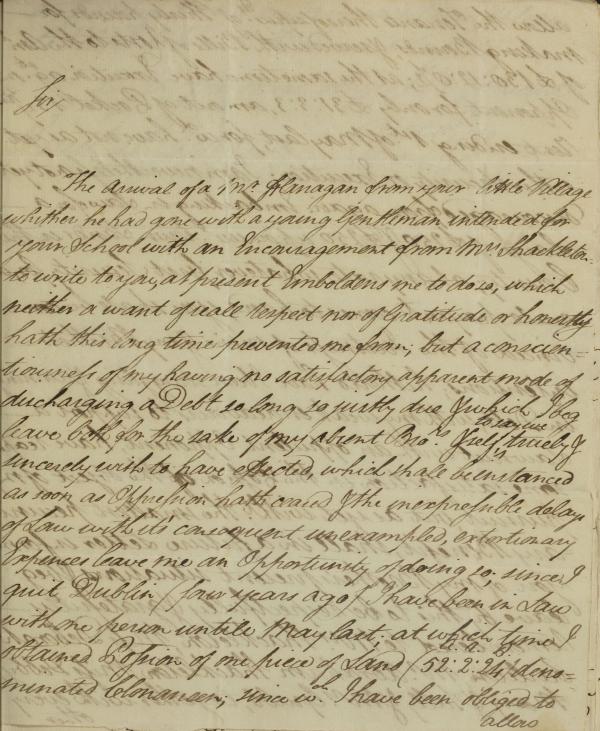 Sir/
The arrival of a Mr. Flanagan from your little Village
whither he had gone with a young Gentleman intended for
your School with an Encouragement from Mrs. Shackleton
to write to you, at present Emboldens me to do so, which
neither a want of reall respect nor of Gratitude or honesty
hath this long time prevented me from; but a conscien=
tiousness of my having no satisfactory apparent mode of
discharging a Debt so long so justly due & which I beg
to say we
leave both for the sake of my absent Bro.s & self truely &
sincerely wish to have effected, which shall be instanced
as soon as Oppression hath ceased & the inexpressible delays
of Law with it's consequent unexampled, extortionary
Expences leave me an Opportunity of doing so; since I
quit Dublin (four years ago) I have been in Law
with one person untill May last; at which time I
obtained Possion of one piece of Land (52:2:24) deno=
minated Clonanseen; since wch. I have been obliged to
allow